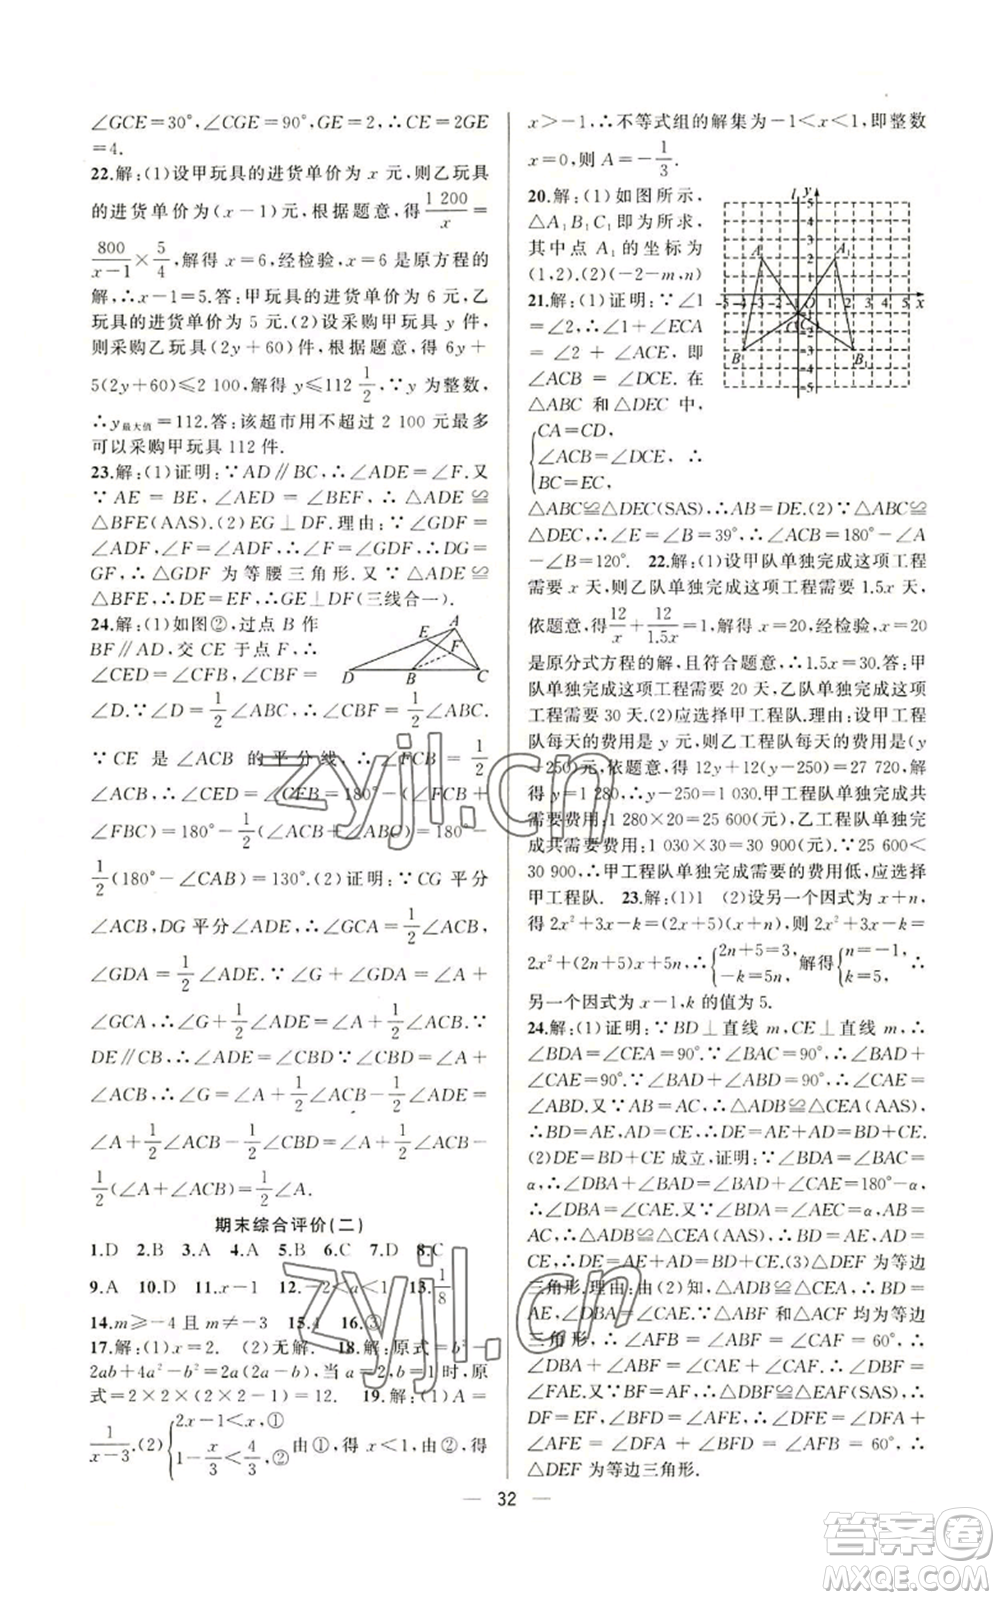 ∠GCE=30°,∠CGE=90°,GE=2,∴CE=2GE
=4.
22.解:(1)设甲玩具的进货单价为 x 元,则乙玩具
的进货单价为(x-1)元,根据题意,得1 200/x=
800/(x-1)×5/4,解得 x=6,经检验,x=6 是原方程的
解,∴x-1=5.答:甲玩具的进货单价为 6 元,乙
玩具的进货单价为 5 元.(2)设采购甲玩具 y 件,
则采购乙玩具(2y+60)件,根据题意,得 6y+
5(2y+60)≤2 100,解得 y≤112 1/2,∵y 为整数,
∴y最大值=112.答:该超市用不超过 2 100 元最多
可以采购甲玩具 112 件.
23.解:(1)证明:∵AD∥BC,∴∠ADE=∠F.又
∵AE=BE,∠AED=∠BEF,∴△ADE≌
△BFE(AAS).(2)EG⊥DF.理由:∵∠GDF=
∠ADF,∠F=∠ADF,∴∠GDF=∠F,∴DG=
GF,∴△GDF 为等腰三角形.又∵△ADE≌
△BFE,∴DE=EF,∴GE⊥DF(三线合一).
24.解:(1)如图②,过点 B 作
BF∥AD,交 CE 于点 F,∴
∠CED=∠CFB,∠CBF=
∠D.∵∠D=1/2∠ABC,∴∠CBF=1/2∠ABC.
∵CE 是 ∠ACB 的平分线,∴∠FCB=1/2
∠ACB,∴∠CED=∠CFB=180°-(∠FCB+
∠FBC)=180°-1/2(∠ACB+∠ABC)=180°-
1/2(180°-∠CAB)=130°.(2)证明:∵CG 平分
∠ACB,DG 平分∠ADE,∴∠GCA=1/2∠ACB,
∠GDA=1/2∠ADE.∵∠G+∠GDA=∠A+
∠GCA,∴∠G+1/2∠ADE=∠A+1/2∠ACB.∵
DE∥CB,∴∠ADE=∠CBD∵∠CBD=∠A+
∠ACB,∴∠G=∠A+1/2∠ACB-1/2∠ADE=
∠A+1/2∠ACB-1/2∠CBD=∠A+1/2∠ACB-
1/2(∠A+∠ACB)=1/2∠A.
A
E
F
D
B
C
期末综合评价(二)
1.D 2.B 3.A 4.A 5.B 6.C 7.D 8.C
9.A 10.D 11.x-1 12.-2<a<1 13.1/8
14.m≥-4且m≠-3 15.4 16.③
17.解:(1)x=2. (2)无解. 18.解:原式=b²-
2ab+4a²-b²=2a(2a-b),当 a=2,b=1时,原
式=2×2×(2×2-1)=12. 19.解:(1)A=
1/(x-3).(2){2x-1<x,① 1-x/3<4/3,② 由①,得 x<1,由②,得
x>-1,∴不等式组的解集为-1<x<1,即整数
x=0,则 A=-1/3.
20.解:(1)如图所示,
△A₁B₁C₁即为所求,
其中点 A₁的坐标为
(1,2).(2)(-2-m,n)
21.解:(1)证明:∵∠1
=∠2,∴∠1+∠ECA
=∠2+∠ACE,即
∠ACB=∠DCE.在
△ABC 和△DEC 中,
{CA=CD,
∠ACB=∠DCE,∴
BC=EC,
△ABC≌△DEC(SAS),∴AB=DE.(2)∵△ABC≌
△DEC,∴∠E=∠B=39°,∴∠ACB=180°-∠A
-∠B=120°. 22.解:(1)设甲队单独完成这项工程
需要 x 天,则乙队单独完成这项工程需要 1.5x 天,
依题意,得12/x+12/1.5x=1,解得 x=20,经检验,x=20
是原分式方程的解,且符合题意,∴1.5x=30.答:甲
队单独完成这项工程需要 20 天,乙队单独完成这项
工程需要 30 天.(2)应选择甲工程队.理由:设甲工程
队每天的费用是 y 元,则乙工程队每天的费用是(y
-250)元,依题意,得 12y+12(y-250)=27 720,解
得 y=1 280,∴y-250=1 030.甲工程队单独完成共
需要费用:1 280×20=25 600(元),乙工程队单独完
成共需要费用:1 030×30=30 900(元).∵25 600<
30 900,∴甲工程队单独完成需要的费用低,应选择
甲工程队. 23.解:(1)1 (2)设另一个因式为 x+n,
得 2x²+3x-k=(2x+5)(x+n),则 2x²+3x-k=
2x²+(2n+5)x+5n,∴{2n+5=3, -k=5n, 解得{n=-1, k=5, ∴
另一个因式为 x-1,k 的值为 5.
24.解:(1)证明:∵BD⊥直线 m,CE⊥直线 m,∴
∠BDA=∠CEA=90°.∵∠BAC=90°,∴∠BAD+
∠CAE=90°.∵∠BAD+∠ABD=90°,∴∠CAE=
∠ABD.又∵AB=AC,∴△ADB≌△CEA(AAS),
∴BD=AE,AD=CE,∴DE=AE+AD=BD+CE.
(2)DE=BD+CE 成立,证明:∵∠BDA=∠BAC=
α,∴∠DBA+∠BAD=∠BAD+∠CAE=180°-α,
∴∠DBA=∠CAE.又∵∠BDA=∠AEC=α,BA=
AC,∴△ADB≌△CEA(AAS),∴BD=AE,AD=
CE,∴DE=AE+AD=BD+CE.(3)△DEF 为等边
三角形.理由:由(2)知,△ADB≌△CEA,∴BD=
AE,∠DBA=∠CAE.∵△ABF 和△ACF 均为等边
三角形,∴∠ABF=∠CAF=60°,∴
∠DBA+∠ABF=∠CAE+∠CAF,∴∠DBF=
∠FAE.∵BF=AF,∴△DBF≌△EAF(SAS),∴
DF=EF,∠BFD=∠AFE,∴∠DFE=∠DFA+
∠AFE=∠DFA+∠BFD=∠AFB=60°,∴
△DEF 为等边三角形.
32
zyjl.cn
zyjl.cn
答案圈
MXQE.COM